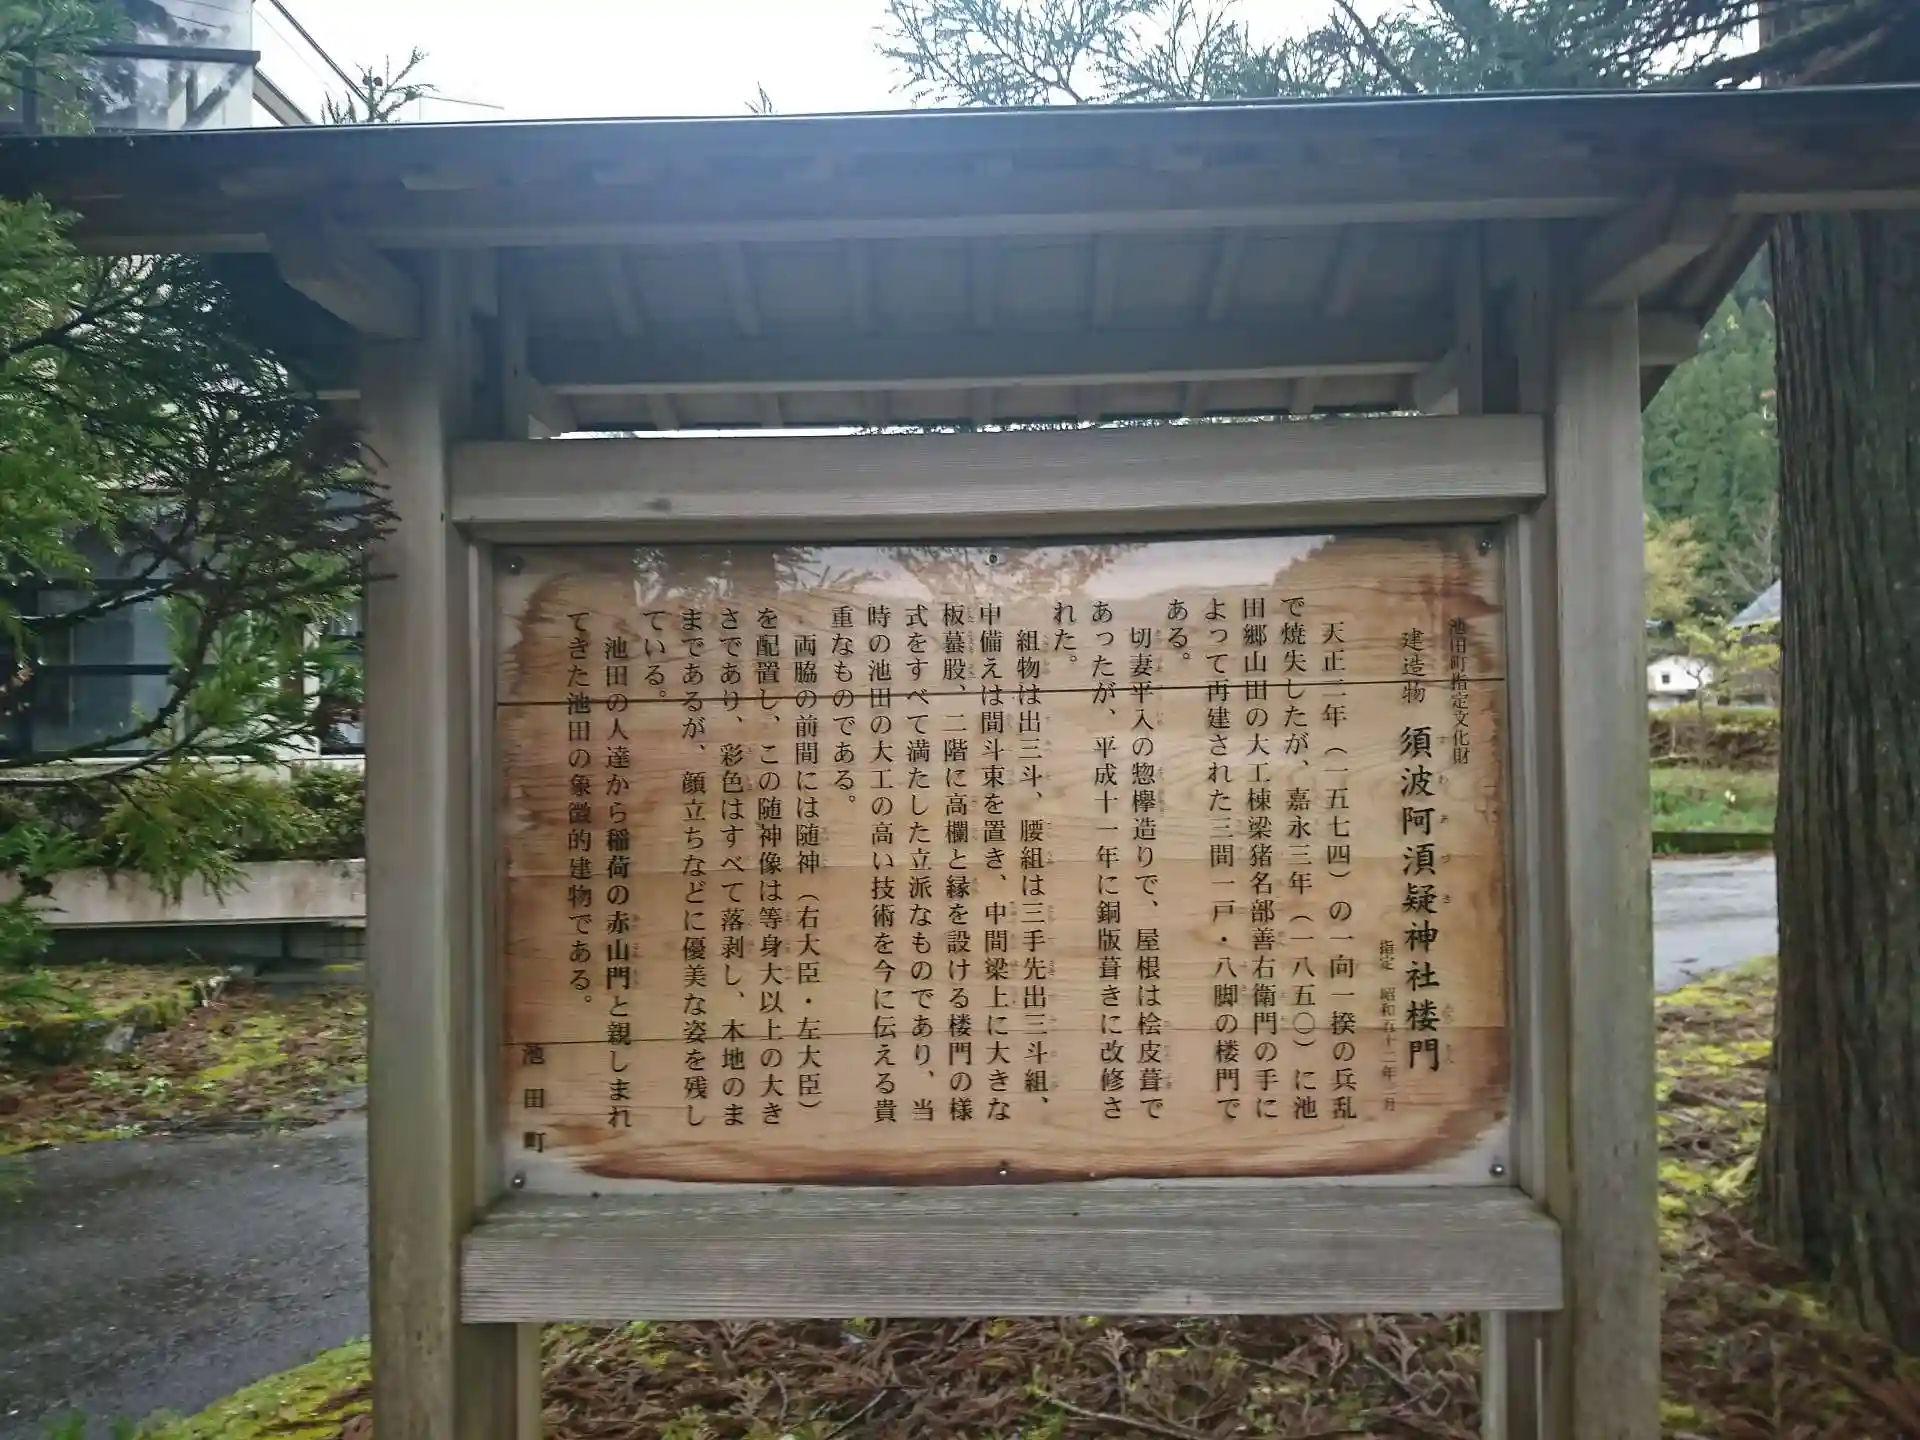 池田町指定文化財
建造物 須波阿湏疑神社楼門
指定 昭和五十二年三月
天正二年（一五七四）の一向一揆の兵乱
で焼失したが、嘉永三年（一八五〇）に池
田郷山田の大工棟梁猪名部善右衛門の手に
よって再建された三間一戸・八脚の楼門で
ある。
切妻平入の惣欅造りで、屋根は桧皮葺で
あったが、平成十一年に銅版葺きに改修さ
れた。
組物は出三斗、腰組は三手先出三斗組、
中備えは間斗束を置き、中間梁上に大きな
板蟇股、二階に高欄と縁を設ける楼門の様
式をすべて満たした立派なものであり、当
時の池田の大工の高い技術を今に伝える貴
重なものである。
両脇の前間には随神（右大臣・左大臣）
を配置し、この随神像は等身大以上の大き
さであり、彩色はすべて落剥し、木地のま
まであるが、顔立ちなどに優美な姿を残し
ている。
池田の人達から稲荷の赤山門と親しまれ
てきた池田の象徴的建物である。
池田町